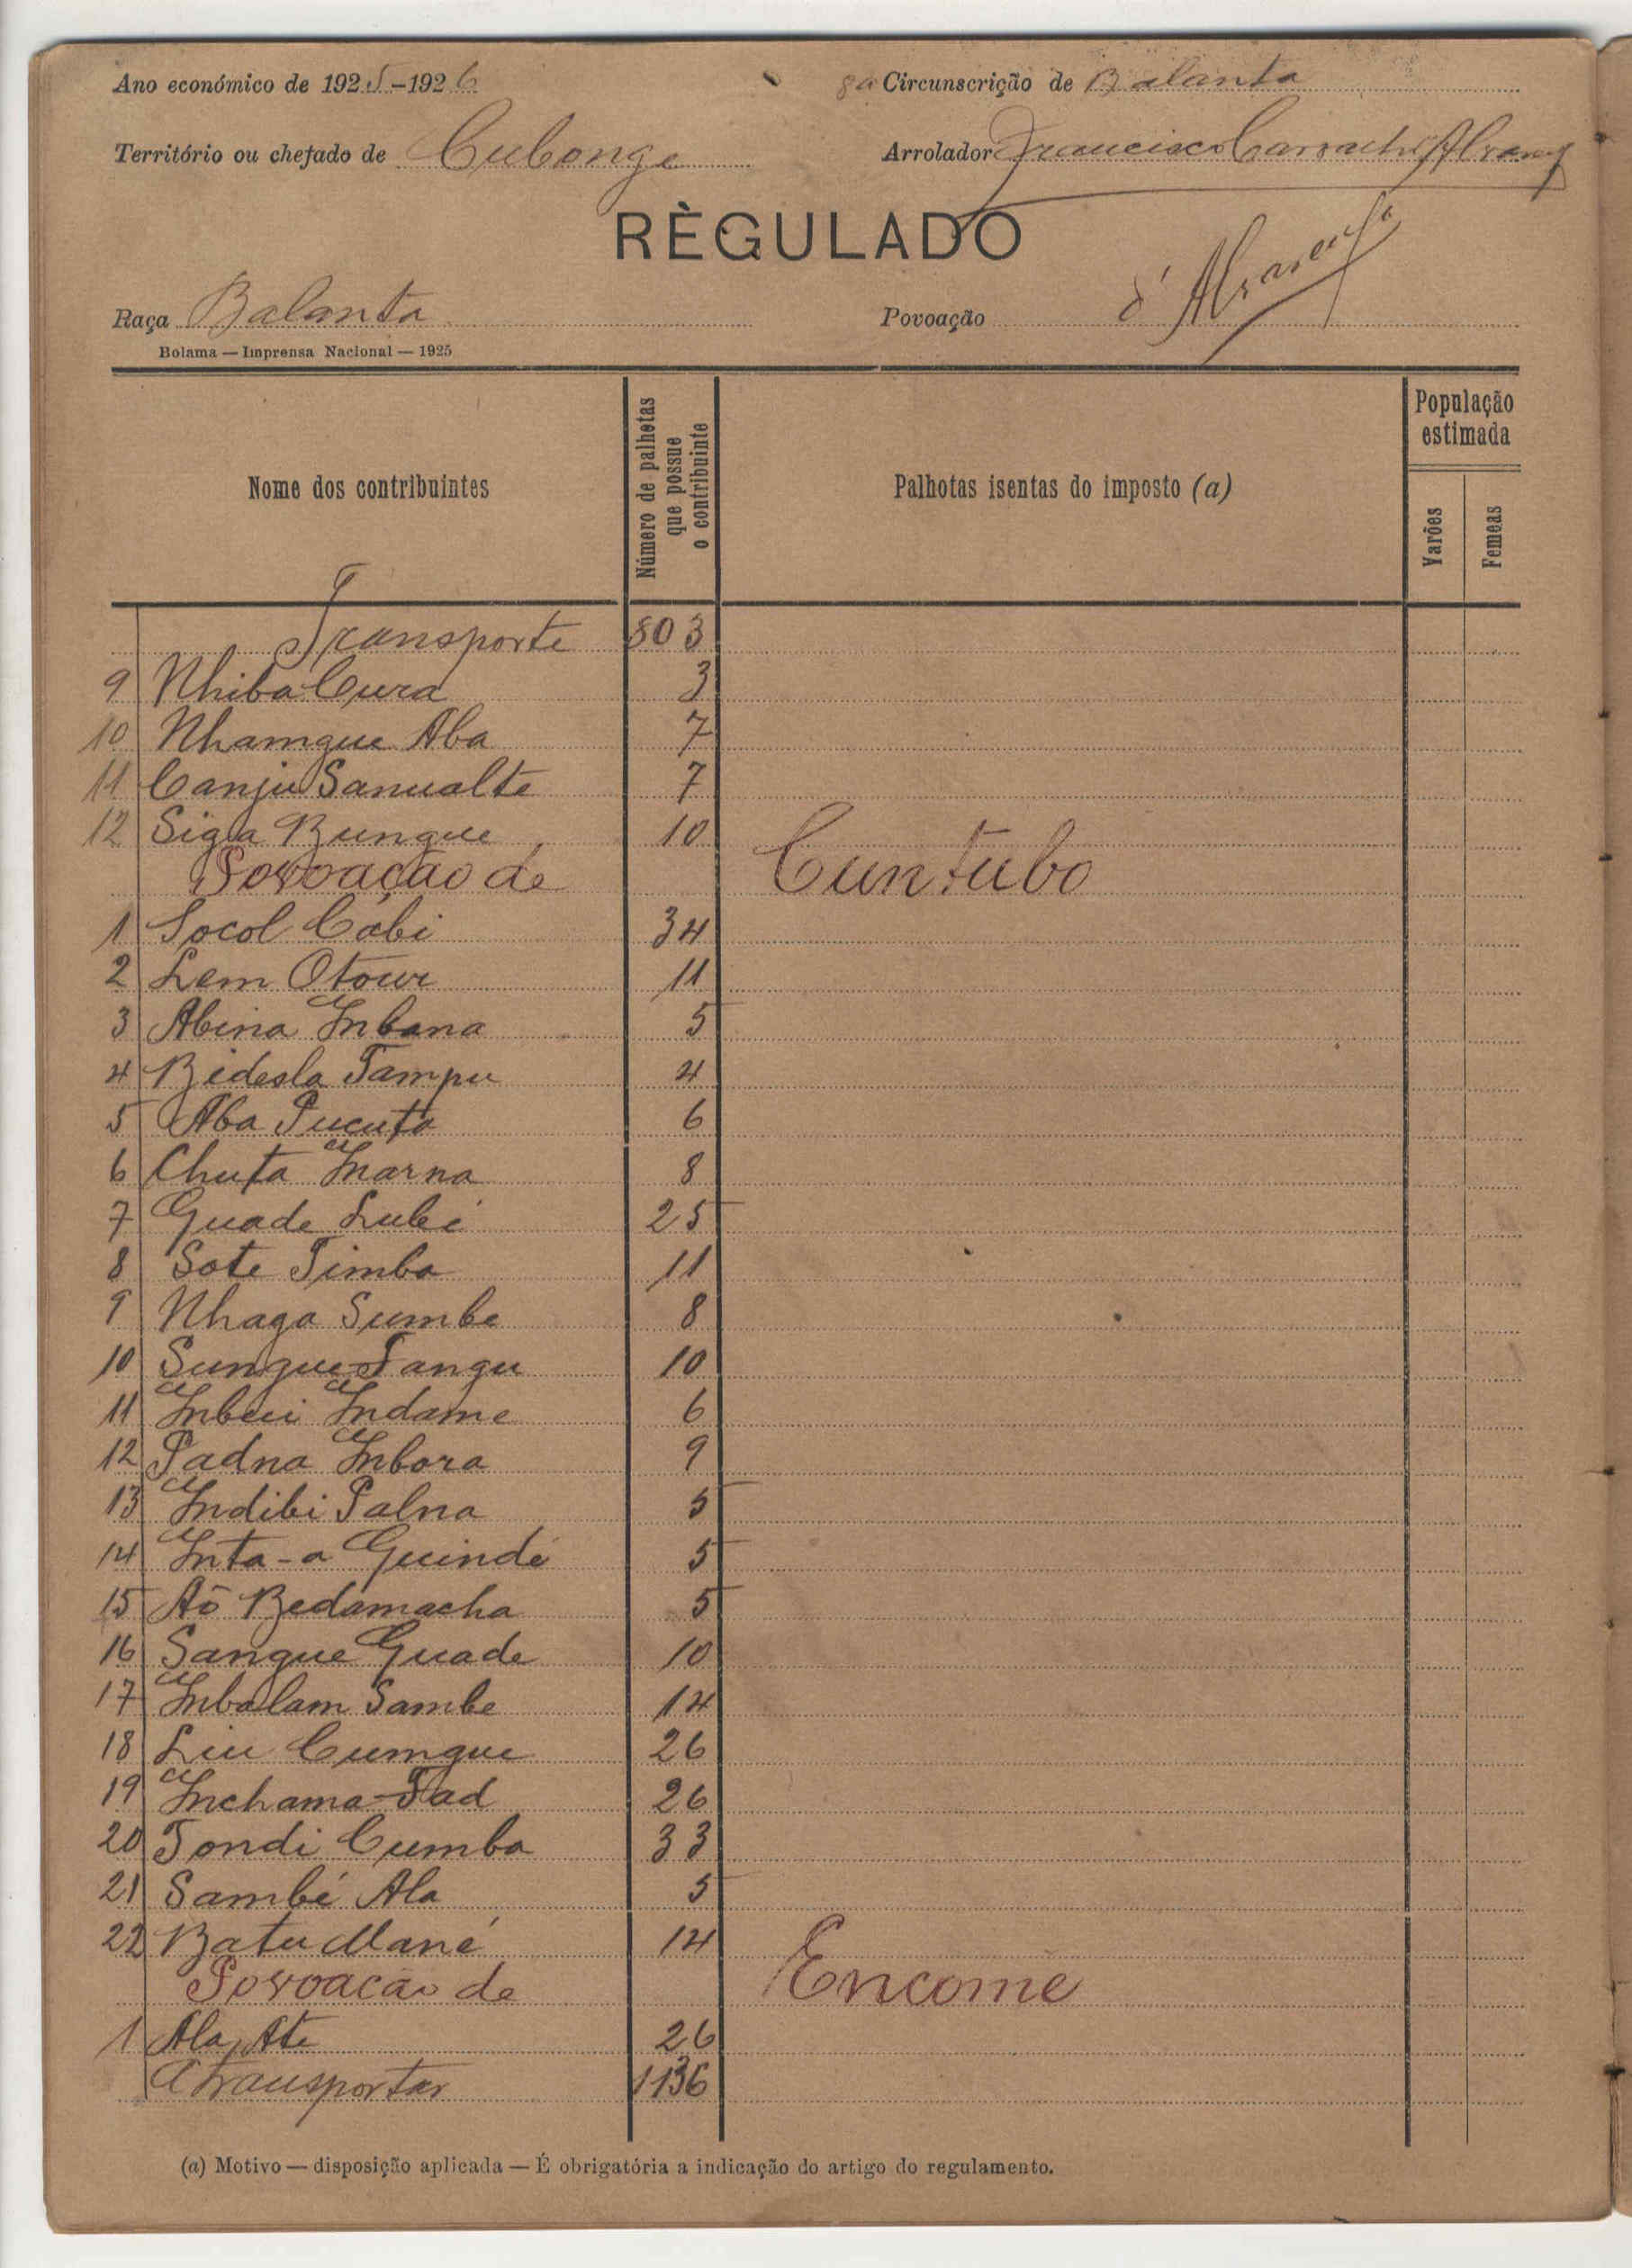 Ano económico de 1925-1926
8a Circunscrição de Balanta
Território ou chefado de Cubonge
Arrolador Francisco Carvalho Alvarenga
RÈGULADO
d'Alvarenga
Raça Balanta
Povoação
Bolama — Imprensa Nacional — 1925
Nome dos contribuintes
Número de palhetas que possue o contribuinte
Palhotas isentas do imposto (a)
População estimada
Varões
Femeas
Transporte 803
9 Nhiba Cura 3
10 Nhamgue Aba 7
11 Canju Sanualte 7
12 Siga Bungue 10
Povoação de Cuntubo
1 Socol Cabi 34
2 Lem Otour 11
3 Abina Inbana 5
4 Bidesla Tampu 4
5 Aba Pucuta 6
6 Chuta Inarna 8
7 Guade Lubi 25
8 Sote Timba 11
9 Nhaga Sumbe 8
10 Sungue-Tangu 10
11 Inbeii Indame 6
12 Padna Inbora 9
13 Indibi Palna 5
14 Inta-a Guinde 5
15 Aõ Bedamacha 5
16 Sangue Guade 10
17 Inbalam Sambe 14
18 Liu Cumgue 26
19 Inchama-Tad 26
20 Tondi Cumba 33
21 Sambé Ala 5
22 Batu Mané 14
Povoacão de Encome
1 Ala Ate 26
A transportar 1136
(a) Motivo — disposição aplicada — É obrigatória a indicação do artigo do regulamento.